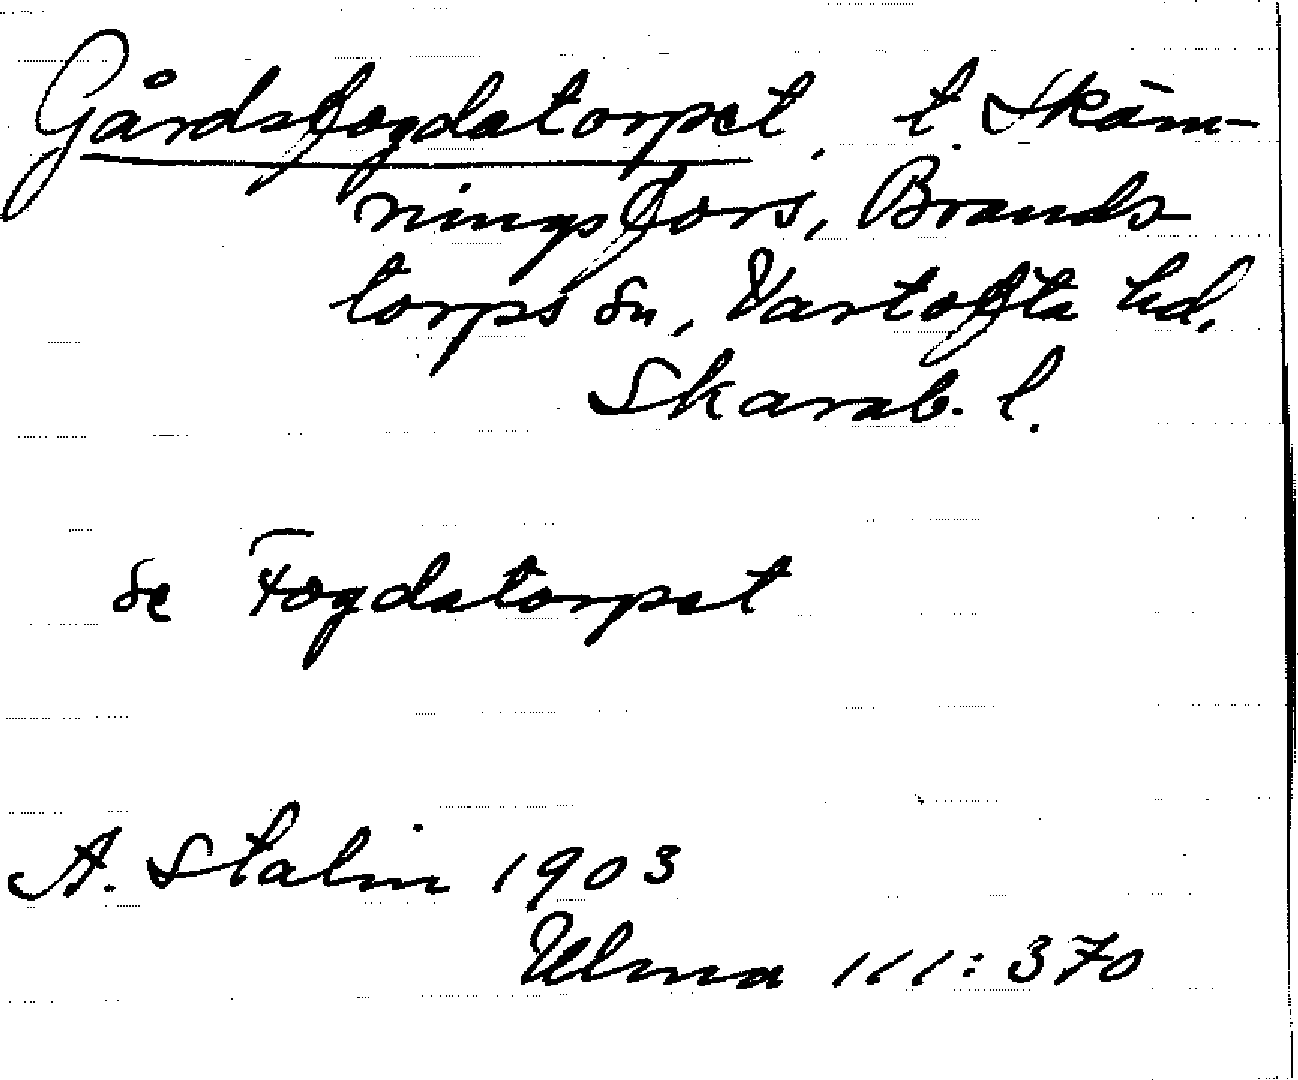 Gårdsfogdatorpet, t. Skäm-
ningsfors, Brands-
torps sn, Vartofta hd,
Skarab. l.
se Fogdatorpet
A. Stalin 1903
Ulma 111:370